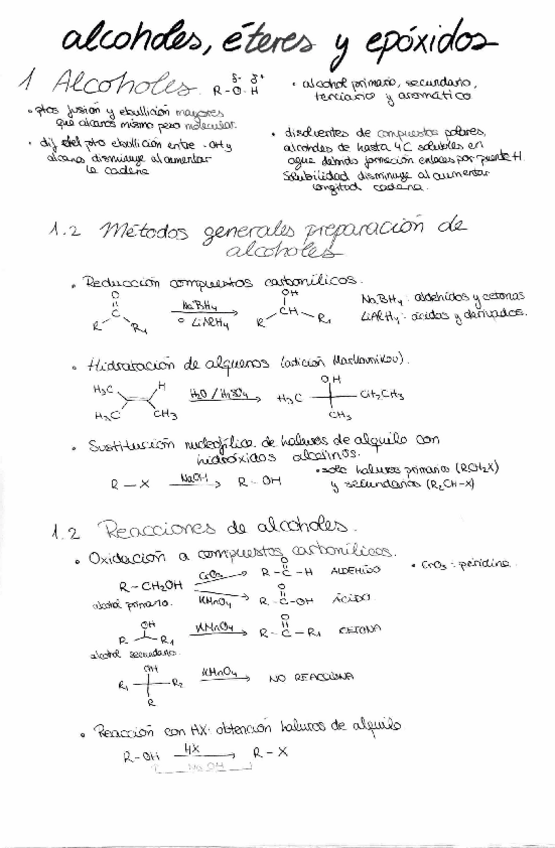 alcoholes, éteres y epóxidos
1 Alcoholes
δ- δ+
R-O-H
• alcohol primario, secundario,
terciario y aromático
• ptos fusión y ebullición mayores
que alcanos mismo peso molecular.
• dif del pto ebullición entre -OH y
alcano disminuye al aumentar
la cadena
• disolventes de compuestos polares,
alcoholes de hasta 4C solubles en
agua debido formación enlaces por puente H.
Solubilidad disminuye al aumentar
longitud cadena.
1.2 Métodos generales preparación de
alcoholes
• Reducción compuestos carbonílicos.
O
C
R R1
NaBH4
o LiAlH4
OH
R CH R1
NaBH4: aldehídos y cetonas
LiAlH4: ácidos y derivados.
• Hidratación de alquenos (adición Markovnikov).
H3C H
H3C CH3
H2O/H2SO4
OH
H3C CH2CH3
CH3
• Sustitución nucleofílica de haluros de alquilo con
hidróxidos alcalinos.
R-X NaOH R-OH
• solo haluros primarios (RCH2X)
y secundarios (R2CH-X)
1.2 Reacciones de alcoholes.
• Oxidación a compuestos carbonílicos.
R-CH2OH
alcohol primario.
CrO3
O
R-C-H ALDEHÍDO
• CrO3: piridina.
KMnO4
O
R-C-OH ÁCIDO
OH
R R1
alcohol secundario.
KMnO4
O
R-C-R1 CETONA
OH
R1 R2
R
KMnO4
NO REACCIONA
• Reacción con HX: obtención haluros de alquilo
R-OH HX R-X
NaOH